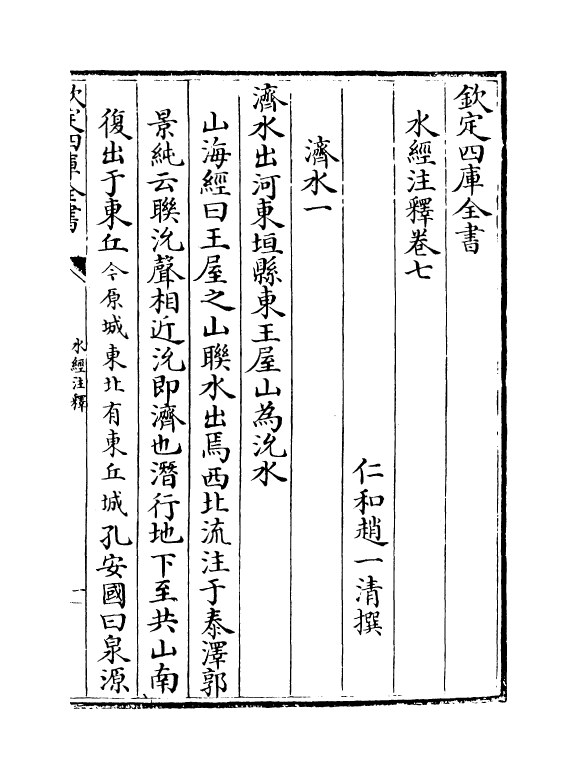 欽定四庫全書
水經注釋卷七
仁和趙一清撰
濟水一
濟水出河東垣縣東王屋山為沇水
山海經曰王屋之山聯水出焉西北流注于泰澤郭
景純云聯沇聲相近沇即濟也潛行地下至共山南
復出于東丘今原城東北有東丘城孔安國曰泉源
欽定四庫全書
水經注釋
一